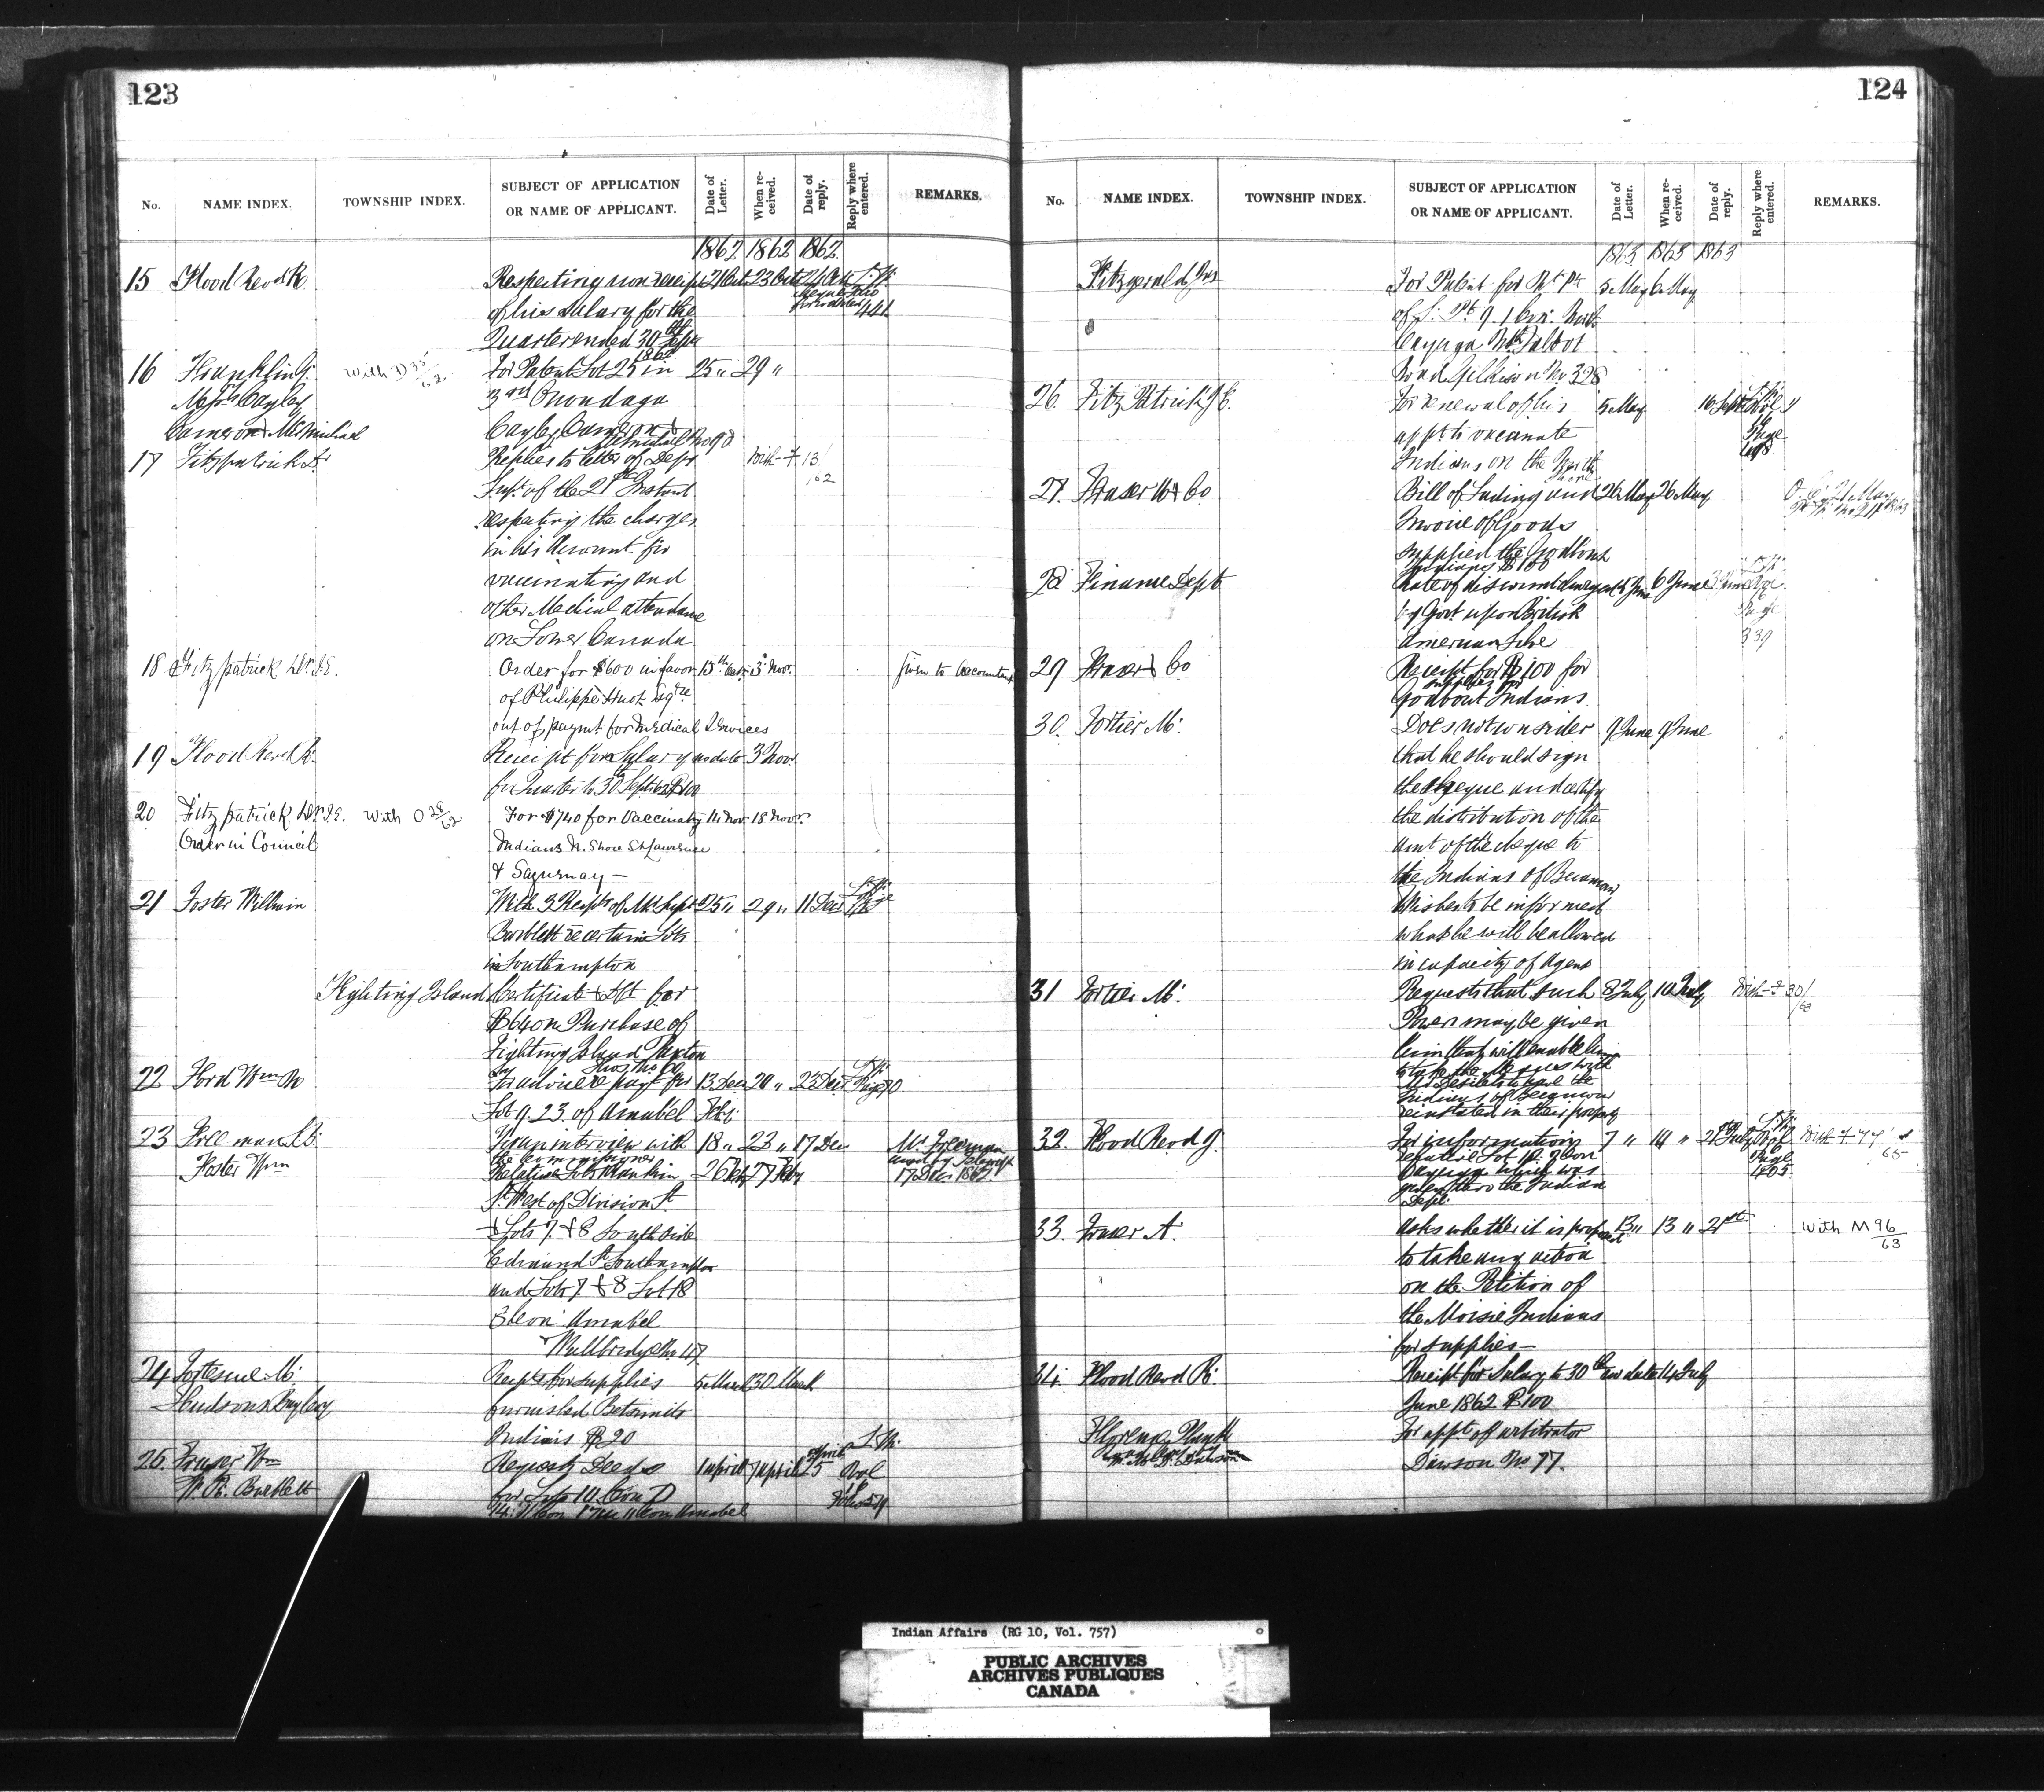 123
No.
NAME INDEX.
TOWNSHIP INDEX.
SUBJECT OF APPLICATION
OR NAME OF APPLICANT.
Date of Letter.
When received.
Date of reply.
Reply where entered.
REMARKS.
1862 1862 1862
15 Flood Revd R. Respecting non receipt 21 Oct 23 Oct
of his salary for the 441
Quarter ended 30 Sepr
1862
16 Franklin With D 35/62 For Patent Lot 25 in 25 " 29 "
Cayley 3rd Onondaga
Cameron & McMichael Cayley Cameron &
17 Fitzpatrick Dr Replies to letter of Depy With F. 13/62
Supt. of the 21st Instant
respecting the charges
in his account for
vaccinating and
other Medical attendance
on Lower Canada
18 Fitzpatrick Dr. J.E. Order for $600 in favor 15th Oct. 3d Novr. given to accountant
of Philippe Huot Esqre
out of paymt for medical Services
19 Flood Revd R. Receipt for Salary no date 3 Novr
for Quarter to 30th Septr 62 $100
20 Fitzpatrick Dr. J.E. With O 28/62 For $740 for Vaccinatg 14 Nov 18 Novr.
Order in Council Indians N. Shore St Lawrence
& Saguenay —
21 Foster William With 3 Recpts of Mr Supt 25 " 29 " 11 Decr
Bartlett re certain Lots
in Southampton
Fighting Island Certificate for
$640 on Purchase of
Fighting Island
22 Ford Wm For advice re paymt for 13 Decr 20 " 23 Decr Page 90.
Lot 9. 23. of Amabel
23 For an interview with 18 " 23 " 17 Dec Mr Freeman
the Commissioner
Foster Wm Relative Lots Rankin 26 Feby 27 Feby 17 Decr 1862
St West of Division St
& Lots 7. & 8 South side
Edmund St Southampton
and Lots 7. & 8 Lot 18
Amabel
24 Fortescue M. Recpt for supplies 5 March 30 March
Hudsons Bay Coy furnished Betsimits
Indians $20
25. Fraser Wm Requests Deeds 1 April 7 April 25
W. R. Bartlett for Lots 10. Con D
124
No.
NAME INDEX.
TOWNSHIP INDEX.
SUBJECT OF APPLICATION
OR NAME OF APPLICANT.
Date of Letter.
When received.
Date of reply.
Reply where entered.
REMARKS.
1863 1863 1863
Fitzgerald Jas For Patent for Nt Pt 5 May 6 May
of S. Pt 9. 1 Con. North
Cayuga Talbot
Road Gilkison No 328
26. Fitz Patrick J E. For renewal of his 5 May 16 Sept
appt to vaccinate Page
Indians on the North
Shore
27. Fraser & Co Bill of Lading and 26 May 26 May
Invoice of Goods
supplied the Godbout
Indians $100
28 Finance Dept Rate of discount charged 5 June 6 June
by Govt upon British Page
American Silver 339
29 Fraser & Co Receipt for $100 for
supplies for
Godbout Indians.
30. Fortier M. Does not consider 9 June 9 June
that he should sign
the cheque and certify
the distribution of the
amt of the cheque to
the Indians of Becancour
Wishes to be informed
what he will be allowed
in capacity of Agent
31 Fortier M. Requests that such 8 July 10 July With F 30/63
Power may be given
him that will enable him
Indians of Becancour
reinstated in their property
32. Flood Revd J. For information 7 " 10 " 21st July
relative Lot 10. 2 Con Page
Cayuga which was 405
given thro the Indian
Dept.
33. Fraser A. Asks whether it is proposed 13 " 13 " 21st With M 96/63
to take any action
on the Petition of
the Moisie Indians
for supplies —
34. Flood Revd R. Receipt for Salary to 30th no date 14 July
June 1862 $100
For appt of arbitrator
Dawson No 77.
Indian Affairs (RG 10, Vol. 757)
PUBLIC ARCHIVES
ARCHIVES PUBLIQUES
CANADA